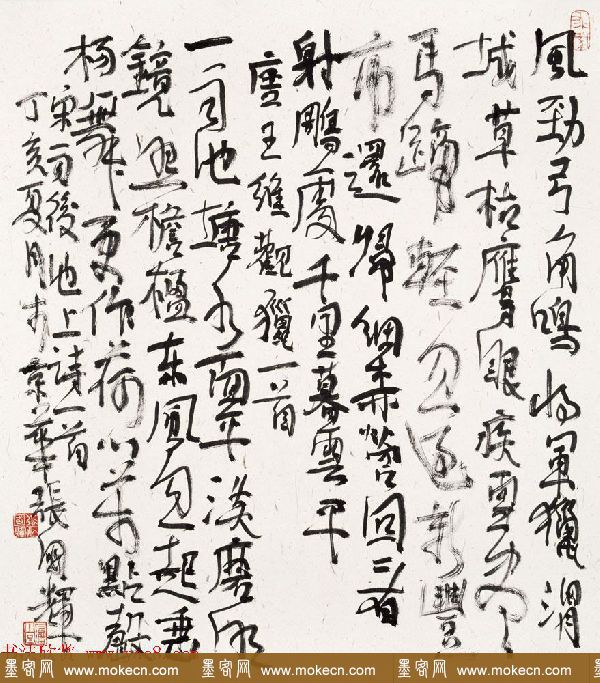 風勁弓角鳴将軍獵渭
城草枯鷹眼疾雪尽
馬蹄輕忽過新豐
市還歸細柳營回看
射鵰處千里暮雲平
唐王維觀獵一首
一雨池塘水面平淡磨明
鏡照檐楹東風忽起垂
楊舞更作荷心萬點聲
宋雨後池上詩一首
丁亥夏月於京華張國輝
墨客网 www.mokecn.com 墨客网 www.mokecn.com 墨客网 www.mokecn.com